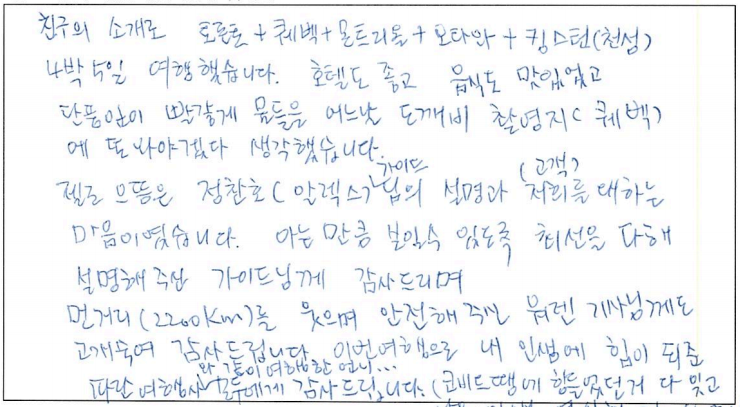 친구의 소개로 토론토+퀘벡+몬트리올+오타와+킹스턴(천섬)
4박5일 여행했습니다. 호텔도 좋고 음식도 맛있었고
단풍잎이 빨갛게 물들을 어느날 도깨비 촬영지(퀘벡)
에 또 와야겠다 생각했습니다.
가이드 (고객)
젤로 으뜸은 정찬호(알렉스)님의 설명과 저희를 대하는
마음이였습니다. 아는 만큼 보일수 있도록 최선을 다해
설명해 주신 가이드님께 감사드리며
먼거리(2200km)를 웃으며 안전해 주신 워렌 기사님께도
고개숙여 감사드립니다. 이번여행으로 내 인생에 힘이 되준
와 같이 여행한 언니...
파란여행사 모두에게 감사드립니다. (코비드땜에 힘들었던거 다 잊고